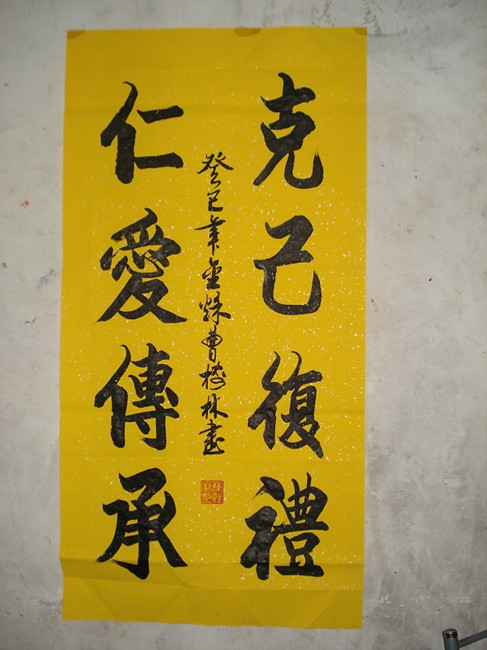 克己復禮
仁愛傳承
癸巳年金秋曹樹林書